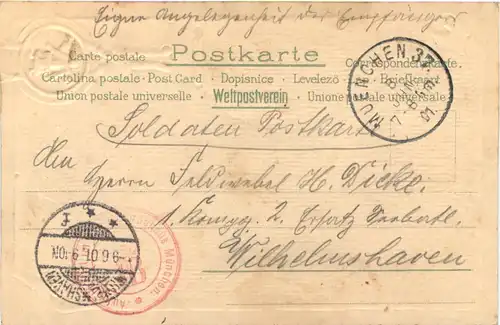 Eigne Angelegenheit des Empfängers
Carte postale • Postkarte • Correspondenzkarte.
Cartolina postale • Post Card • Dopisnice • Levelező Lap • Briefkaart
Union postale universelle. Weltpostverein Unione postale universale.
MUENCHEN 37
8 JUN
7-8 N
01
Soldaten Postkarte
An
Herrn Feldwebel H. Dicke.
1. Kompg. 2. Ersatz Seebatl.
Wilhelmshaven
WILHELMSHAVEN
9 6 01 9-10N
München.